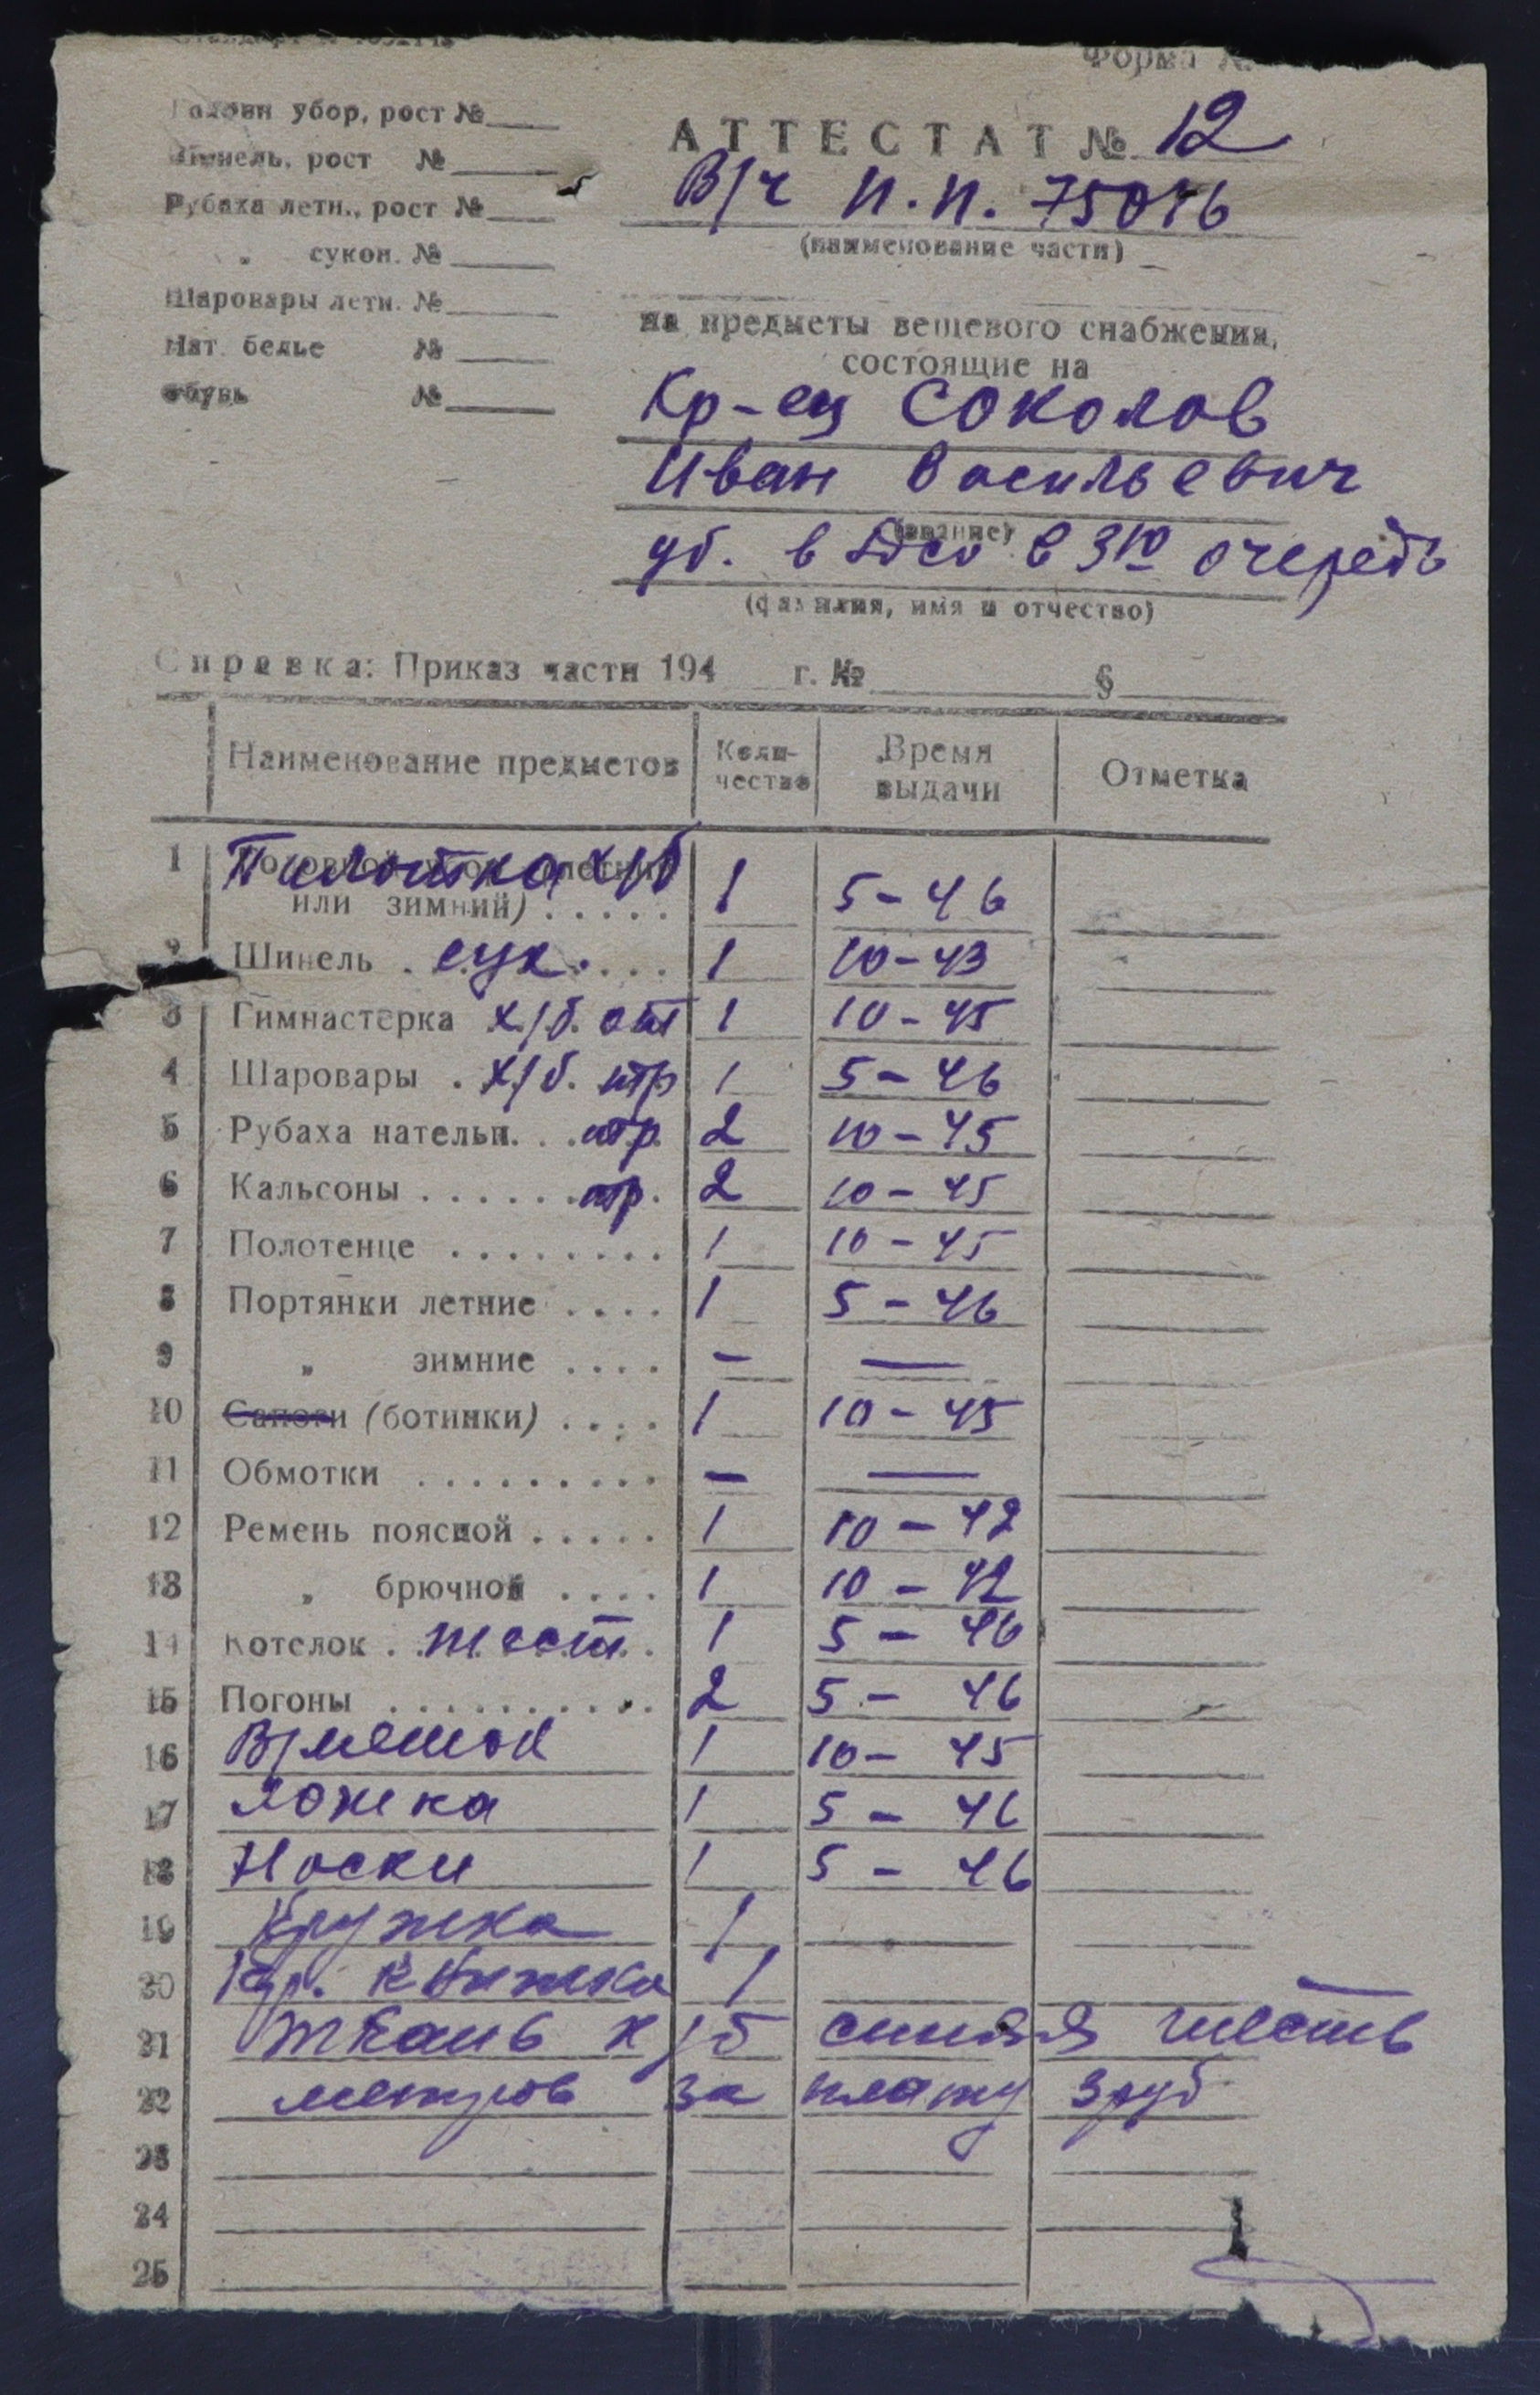 Форма №
Головн убор, рост №
Шинель, рост №
Рубаха летн., рост №
„ сукон. №
Шаровары летн. №
Нат. белье №
обувь №
АТТЕСТАТ № 12
В/ч п.п. 75046
(наименование части)
на предметы вещевого снабжения,
состоящие на
Кр-ец Соколов
Иван Васильевич
(звание)
уб. в в 3ю очередь
(фамилия, имя и отчество)
Справка: Приказ части 194 г. № §
Наименование предметов Коли-чество Время выдачи Отметка
1 Пилотка х/б
или зимний) . . . . . 1 5-46
2 Шинель . сук. . . . 1 10-43
3 Гимнастерка х/б. от 1 10-45
4 Шаровары . х/б. птр 1 5-46
5 Рубаха нательн. . птр. 2 10-45
6 Кальсоны . . . . . . птр. 2 10-45
7 Полотенце . . . . . . . . 1 10-45
8 Портянки летние . . . . 1 5-46
9 „ зимние . . . . — —
10 Сапоги (ботинки) . . . . 1 10-45
11 Обмотки . . . . . . . . . — —
12 Ремень поясной . . . . . 1 10-42
13 „ брючной . . . . 1 10-42
14 Котелок . жест. . 1 5-46
15 Погоны . . . . . . . . . . 2 5-46
16 В/мешок 1 10-45
17 Ложка 1 5-46
18 Носки 1 5-46
19 Кружка 1
20 Кр. книжка 1 —
21 ткань х/б синяя шесть
22 метров за плату 3 руб
23
24
25